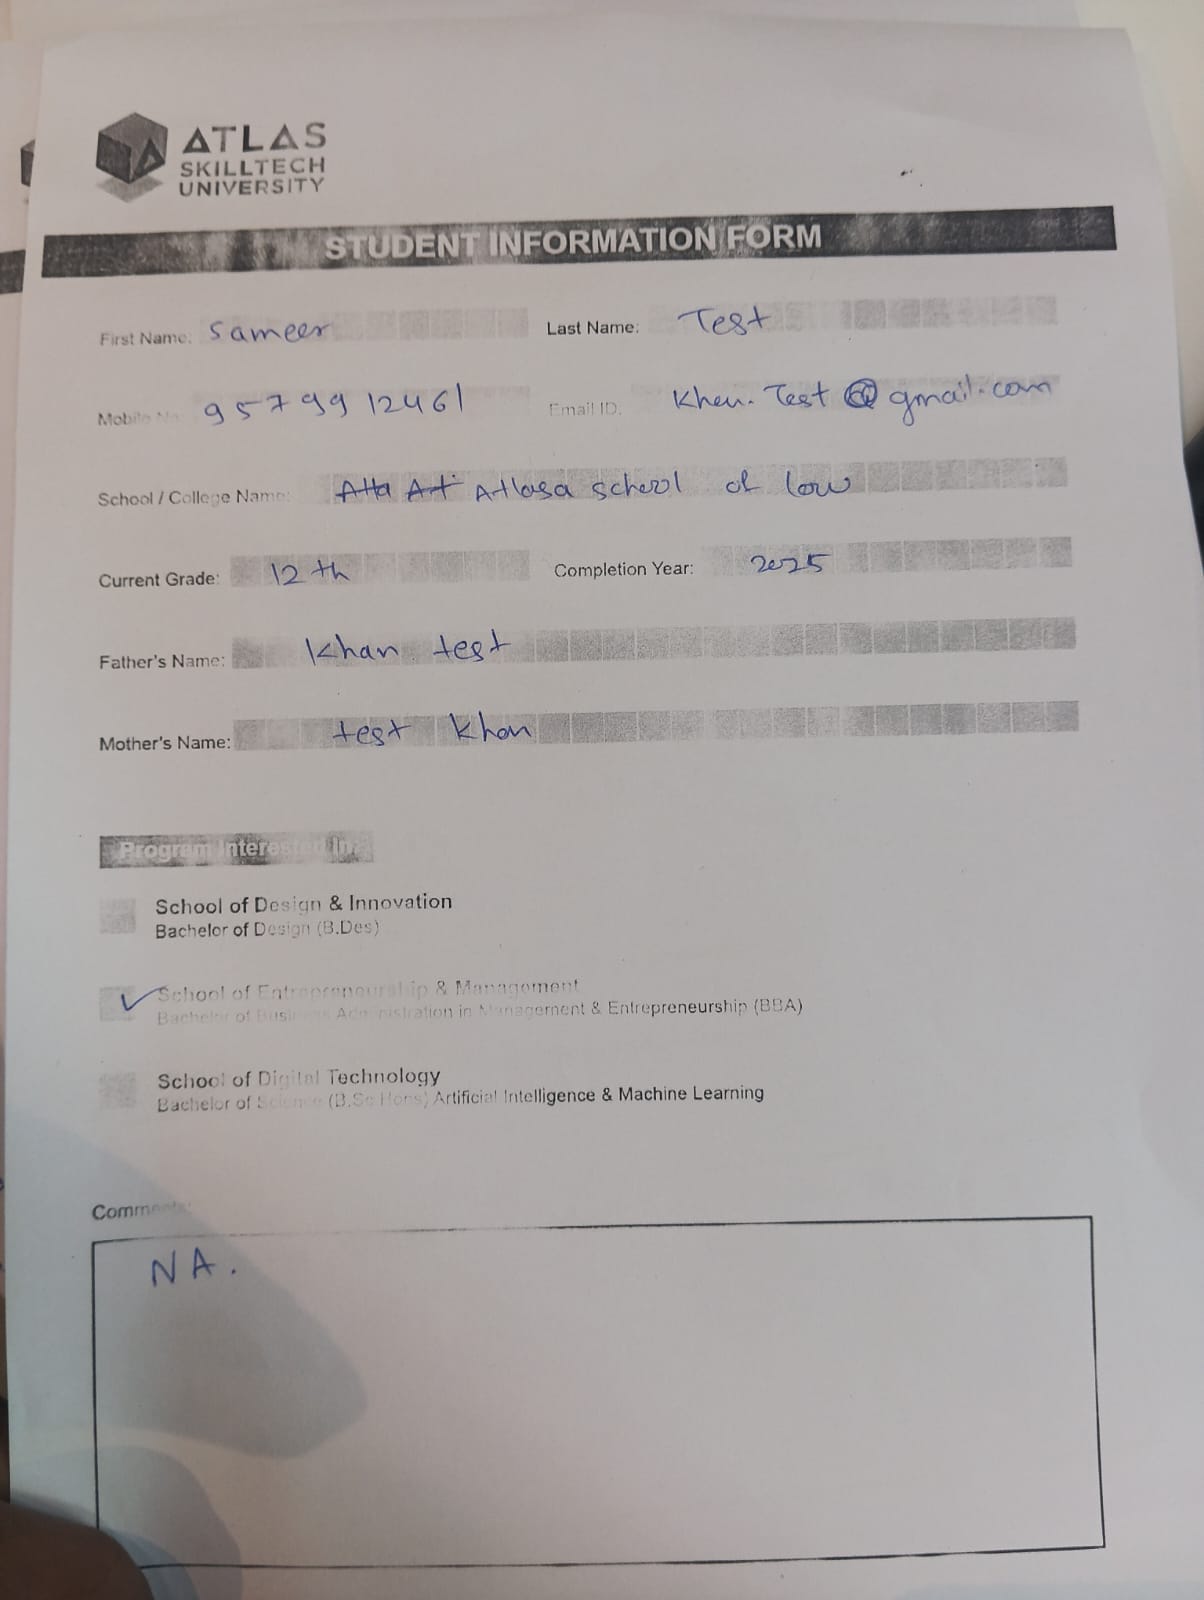 ATLAS
SKILLTECH
UNIVERSITY
STUDENT INFORMATION FORM
First Name: Sameer Last Name: Test
Mobile No: 9579912461 Email ID: Khen.Test@gmail.com
School / College Name: Atta At Atlasa school of low
Current Grade: 12th Completion Year: 2025
Father's Name: Khan test
Mother's Name: test Khan
Program Interested In:
School of Design & Innovation
Bachelor of Design (B.Des)
School of Entrepreneurship & Management
Bachelor of Business Administration in Management & Entrepreneurship (BBA)
School of Digital Technology
Bachelor of Science (B.Sc Hons) Artificial Intelligence & Machine Learning
Comments:
NA.